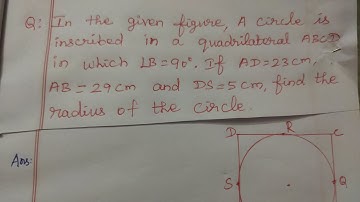 Q: In the given figure, A circle is
inscribed in a quadrilateral ABCD
in which LB=90°. If AD=23cm,
AB=29cm and DS=5cm, find the
radius of the circle.
D R C
Ans:
S Q